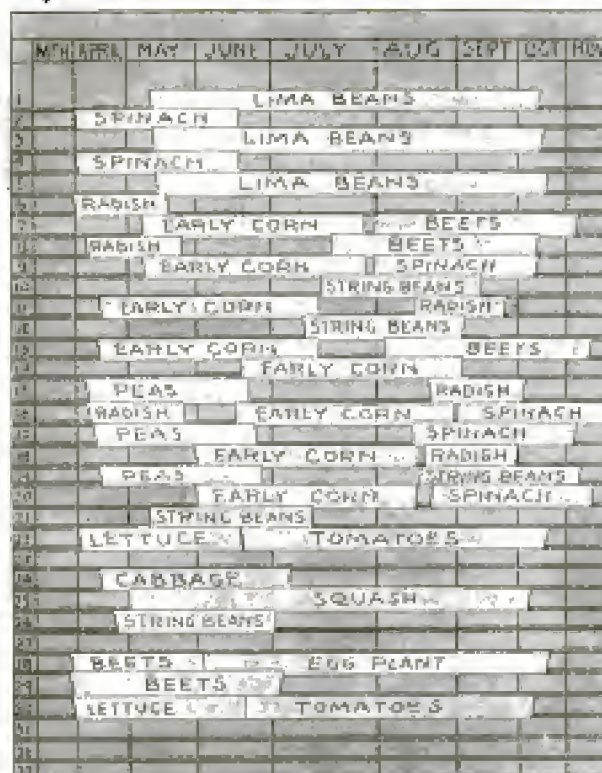 MCH APRIL MAY JUNE JULY AUG SEPT OCT NOV
1 LIMA BEANS
2 SPINACH
3 LIMA BEANS
4 SPINACH
5 LIMA BEANS
6 RADISH
7 EARLY CORN BEETS
8 RADISH BEETS
9 EARLY CORN SPINACH
10 STRING BEANS
11 EARLY CORN RADISH
12 STRING BEANS
13 EARLY CORN BEETS
14 EARLY CORN
15 PEAS RADISH
16 RADISH EARLY CORN SPINACH
17 PEAS SPINACH
18 EARLY CORN RADISH
19 PEAS STRING BEANS
20 EARLY CORN SPINACH
21 STRING BEANS
22 LETTUCE TOMATOES
23
24 CABBAGE
25 SQUASH
26 STRING BEANS
27
28 BEETS EGG PLANT
29 BEETS
30 LETTUCE TOMATOES
31
32
33